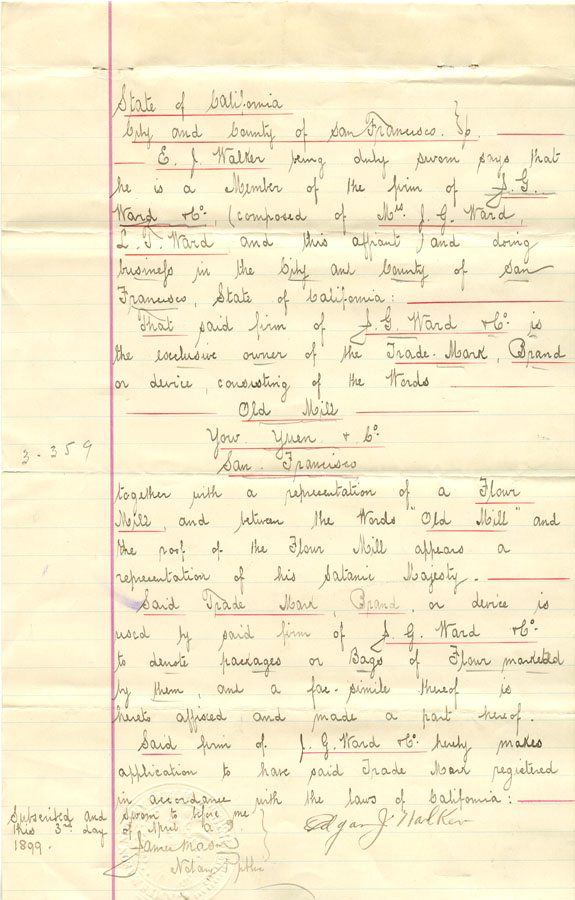 State of California
City and County of San Francisco. } ss.
E. J. Walker being duly sworn says that
he is a Member of the firm of J. G.
Ward & Co. (composed of Mrs. J. G. Ward,
L. T. Ward and this affiant) and doing
business in the City and County of San
Francisco, State of California:
That said firm of J. G. Ward & Co. is
the exclusive owner of the Trade-Mark, Brand
or device, consisting of the Words
Old Mill
Yow Yuen & Co.
San Francisco
3-359
together with a representation of a Flour
Mill, and between the Words "Old Mill" and
the roof of the Flour Mill appears a
representation of his Satanic Majesty.
Said Trade Mark, Brand, or device is
used by said firm of J. G. Ward & Co.
to denote packages or Bags of Flour marketed
by them, and a fac-simile thereof is
hereto affixed and made a part hereof.
Said firm of J. G. Ward & Co. hereby makes
application to have said Trade Mark registered
in accordance with the laws of California:
Subscribed and sworn to before me
this 3rd day of April A.D.
1899.
James Mason
Notary Public
Edgar J. Walker